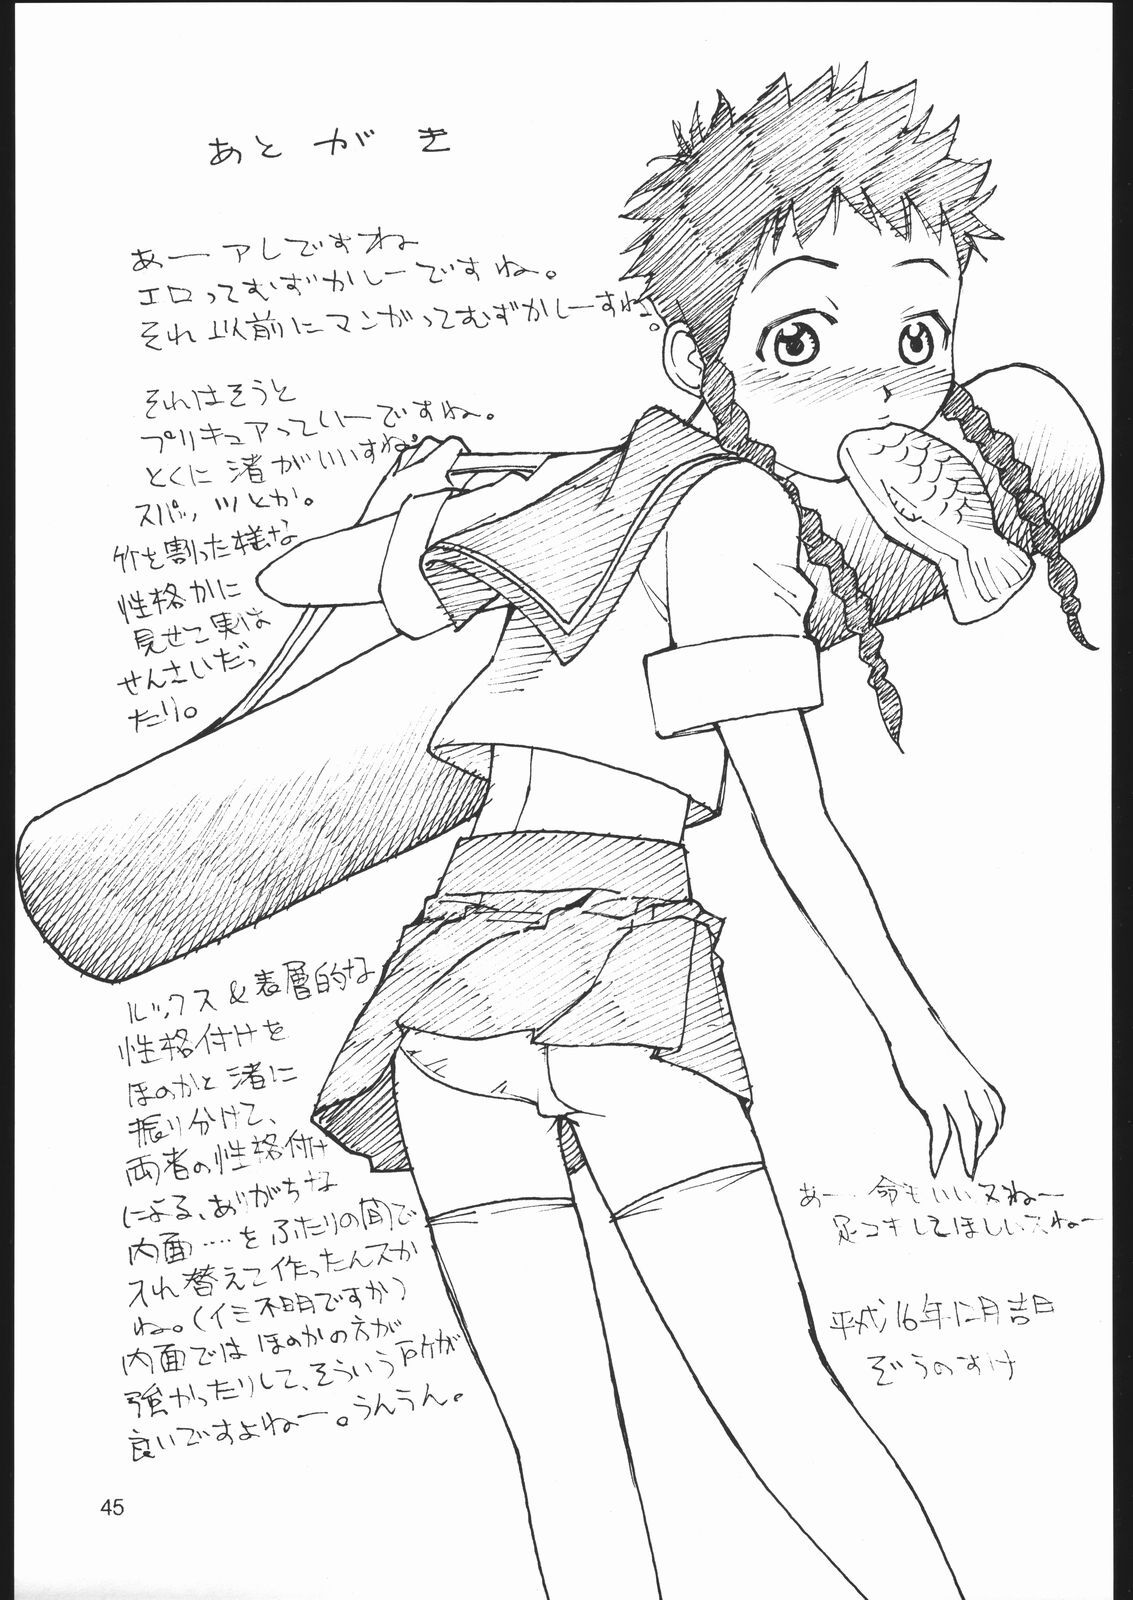 あとがき
あーアレですね
エロってむずかしーですね。
それ以前にマンガってむずかしーすね!
それはそうと
プリキュアっていーですね。
とくに渚がいいすね。
スパッツとか。
竹を割った様な
性格かに
見せて実は
せんさいだっ
たり。
ルックス&表層的な
性格付けを
ほのかと渚に
振り分けて、
両者の性格付け
による、ありがちな
内面……をふたりの間で
入れ替えて作ったんスか
ね。(イミ不明ですか)
内面ではほのかの方が
強かったりして、そういうトケが
良いですよねー。うんうん。
あー、命もいいスねー
足コキしてほしいスねー
平成16年12月吉日
ぞうのすけ
45